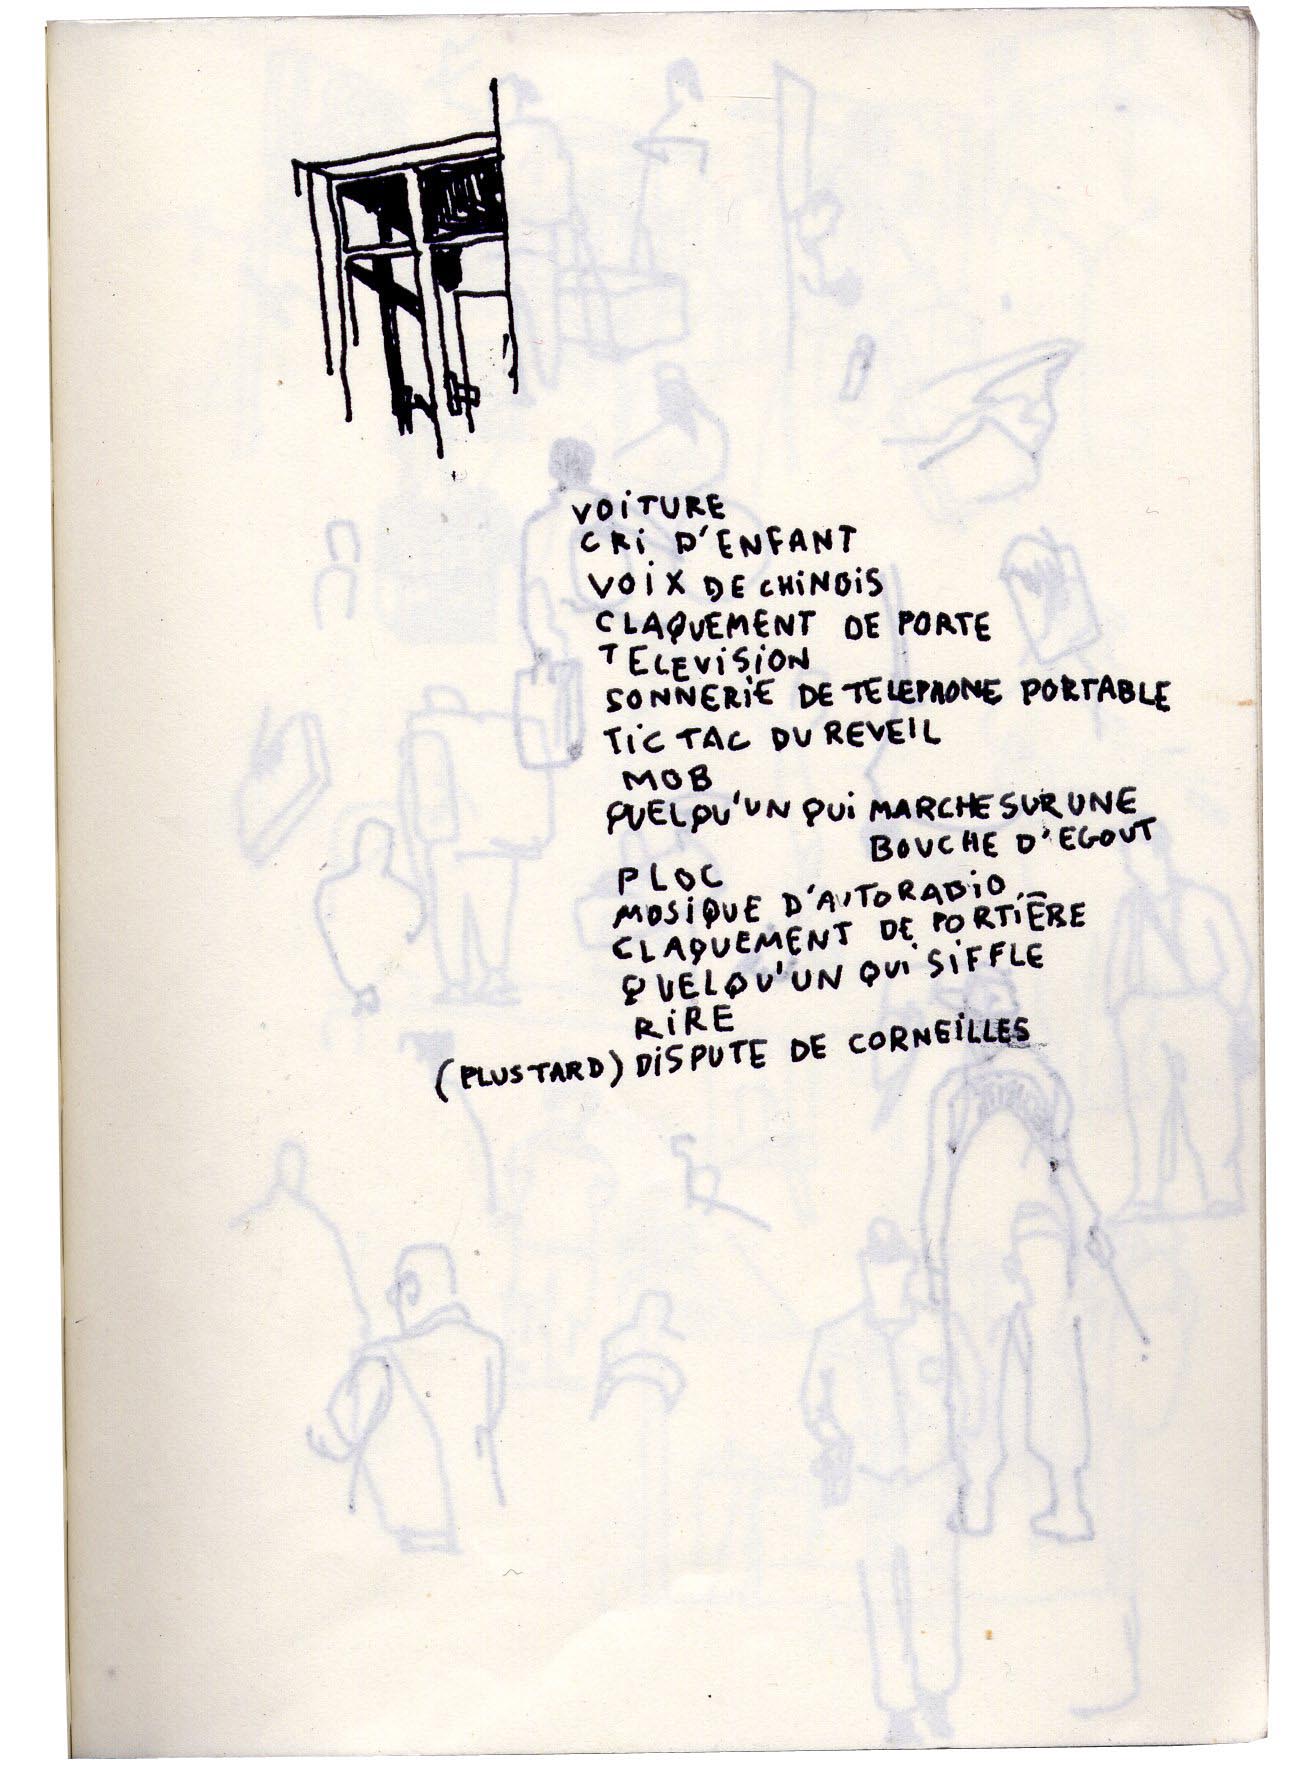 VOITURE
CRI D'ENFANT
VOIX DE CHINOIS
CLAQUEMENT DE PORTE
TELEVISION
SONNERIE DE TELEPHONE PORTABLE
TIC TAC DU REVEIL
MOB
QUELQU'UN QUI MARCHE SUR UNE
BOUCHE D'EGOUT
PLOC
MUSIQUE D'AUTORADIO
CLAQUEMENT DE PORTIÈRE
QUELQU'UN QUI SIFFLE
RIRE
(PLUS TARD) DISPUTE DE CORNEILLES